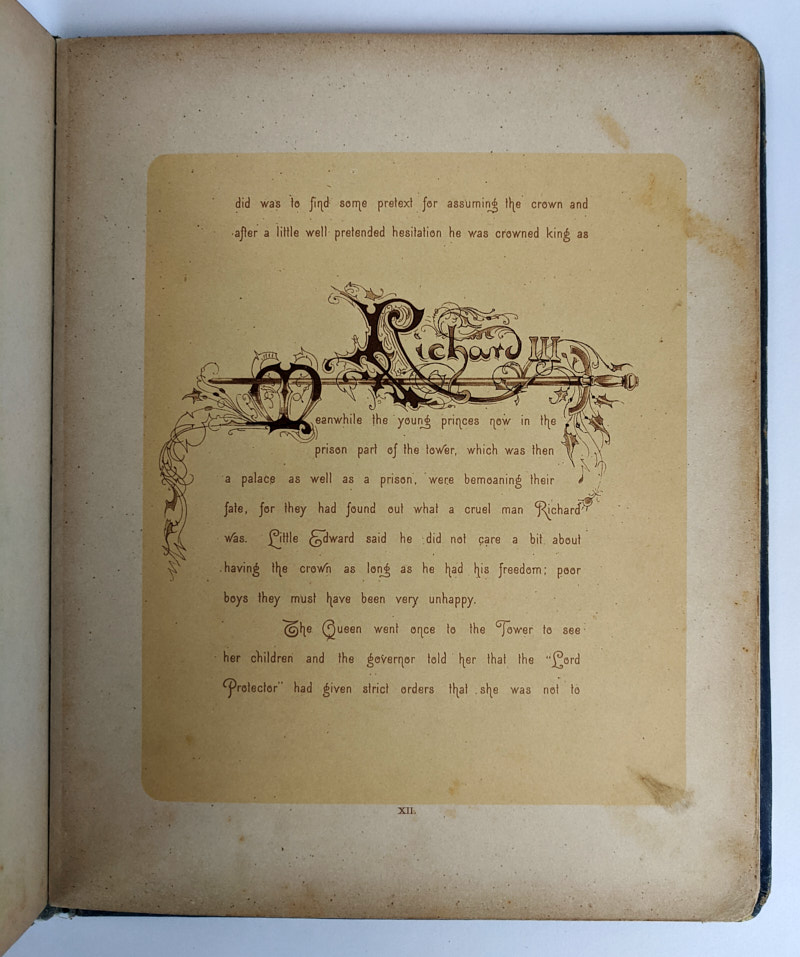 did was to find some pretext for assuming the crown and
after a little well pretended hesitation he was crowned king as
Richard III
Meanwhile the young princes now in the
prison part of the tower, which was then
a palace as well as a prison, were bemoaning their
fate, for they had found out what a cruel man Richard
was. Little Edward said he did not care a bit about
having the crown as long as he had his freedom; poor
boys they must have been very unhappy.
The Queen went once to the Tower to see
her children and the governor told her that the "Lord
Protector" had given strict orders that she was not to
XII.